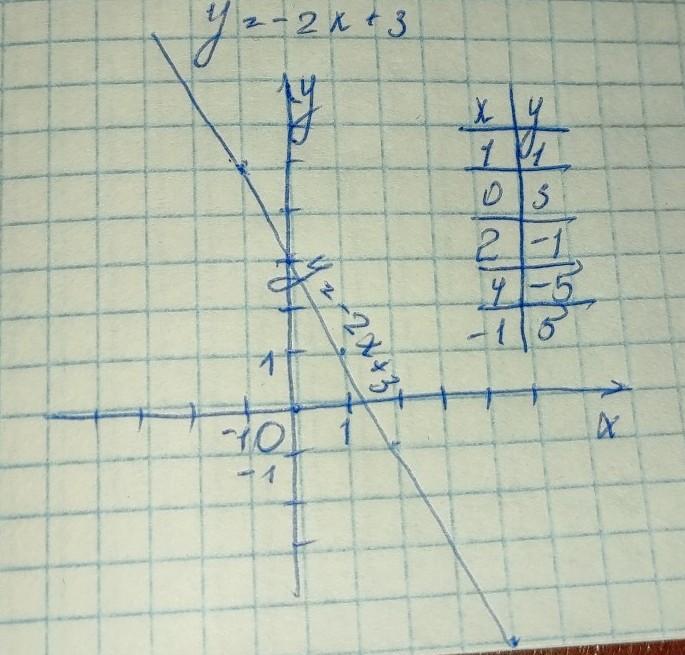 y = -2x + 3
y
x y
1 1
0 3
2 -1
4 -5
-1 5
y = -2x + 3
1
-1 0 1 x
-1